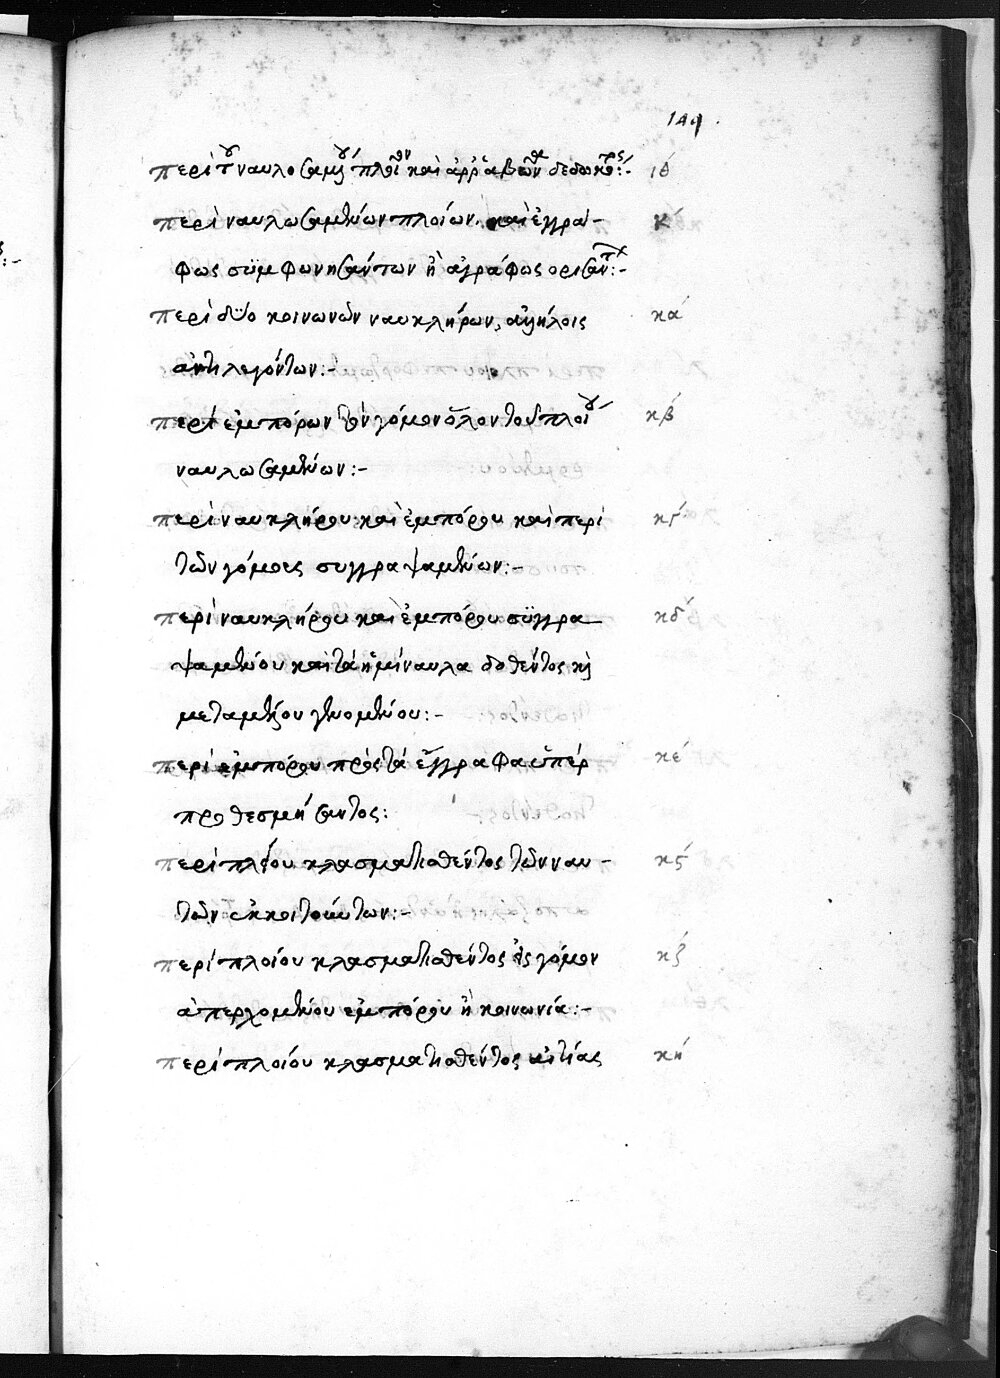 149
περὶ τοῦ ναυλοσαμένου πλοῖον καὶ ἀρραβῶνα δεδωκότος:- ιθ
περὶ ναυλωσαμένων πλοίων. καὶ ἐγγρά- κ
φως συμφωνησάντων ἢ ἀγράφως ορισαν:-
περὶ δύο κοινωνῶν ναυκλήρων, αλλήλοις κά
ἀντιλεγόντων:-
περὶ ἐμπόρων τὸν γόμον ὅλον τοῦ πλοίου κβ́
ναυλωσαμένων:-
περὶ ναυκλήρου καὶ ἐμπόρου καὶ περὶ κγ́
τῶν γόμους συγγραψαμένων:-
περὶ ναυκλήρου καὶ ἐμπόρου συγγρα κδ́
ψαμένου καὶ τὰ ἡμίναυλα δοθέντος καὶ
μεταμέλου γενομένου:-
περὶ ἐμπόρου πρὸς τὰ ἔγγραφα ὑπὲρ κέ
προθεσμήσαντος:
περὶ πλοίου κλασματισθέντος τῶν ναυ- κϛ́
τῶν ἐκκοιτούντων:-
περὶ πλοίου κλασματισθέντος εἰς γόμον κζ́
ἀπερχομένου ἐμπόρου ἢ κοινωνία:-
περὶ πλοίου κλασματισθέντος αἰτίας κή